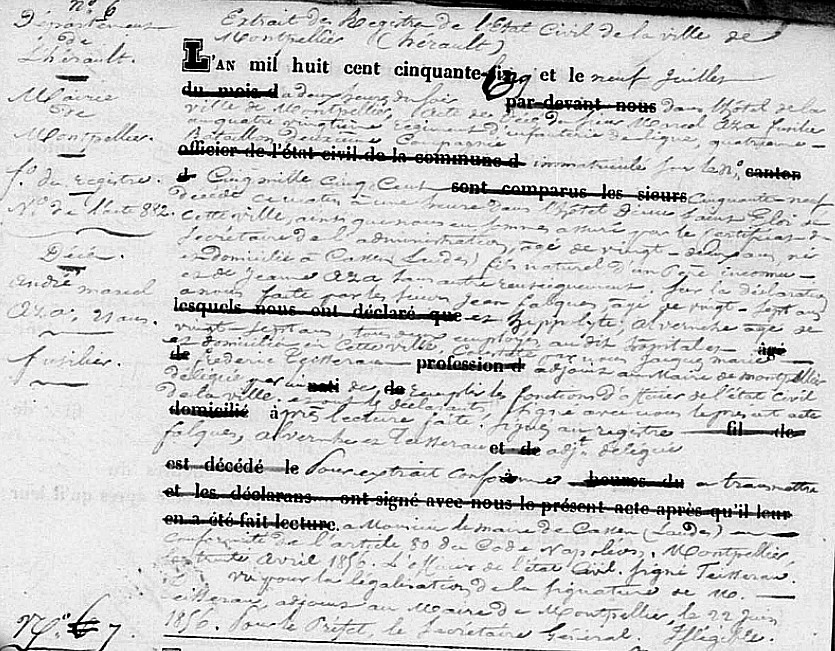 nº 6
Département
de
l'hérault.
Mairie
de
Montpellier.
fº du Registre.
Nº de l'acte 882.
Décès.
andré marcel
aza, 21 ans.
fusilier.
Nº 6 7.
Extrait du Registre de l'Etat Civil de la ville de
Montpellier (hérault)
L'AN mil huit cent cinquante-cinq et le neuf Juillet
du mois d a deux heures du soir par-devant nous dans l'hôtel de la
ville de Montpellier, acte de décès du sieur Marcel Aza fusilier
au quatre vingtième Régiment d'infanterie de ligne, quatrième
Bataillon Deuxième Compagnie
officier de l'état civil de la commune d immatriculé sur le nº canton
d Cinq mille Cinq Cent sont comparus les sieurs Cinquante neuf
décédé ce matin à une heure dans l'hôtel Dieu Saint Eloi de
cette ville, ainsi que nous en sommes assuré par le Certificat du
Secrétaire de l'administration, agé de vingt- ans, né
et domicilié à Cassen (Landes) fils naturel d'un Père inconnu
et de Jeanne Aza sans autre Renseignement. Sur la déclaration
a nous faite par les sieurs Jean falques, agé de vingt-sept ans
lesquels nous ont déclaré que et hippolyte, alvernhe agé de
vingt sept ans, tous deux employés au dit hospital et âgé
et domiciliés en cette ville Constaté par nous Jacques marie
de frederic Teisserau profession d adjoint au Maire de montpellier
délégué par nati de de Remplir les fonctions d'officier de l'état civil
de la ville. et ont les déclarants, signé avec nous le présent acte
domicilié après lecture faite. Signés au registre fil de
falques, alvernhe et Teisserau et de adjt délégué
est décédé le Pour extrait conforme à heures du a transmettre
et les déclarans ont signé avec nous le présent acte après qu'il leur
en a été fait lecture. a Monsieur le maire de Cassen (Landes) en
conformité de l'article 80 du Code Napoléon. Montpellier
le trente Avril 1856. L'officier de l'état Civil. signé Teisserau.
Vu pour la légalisation de la signature de M.
Teisserau, adjoint au Maire de Montpellier, le 22 Juin
1856. Pour le Préfet, le Secrétaire Général. Illégible.